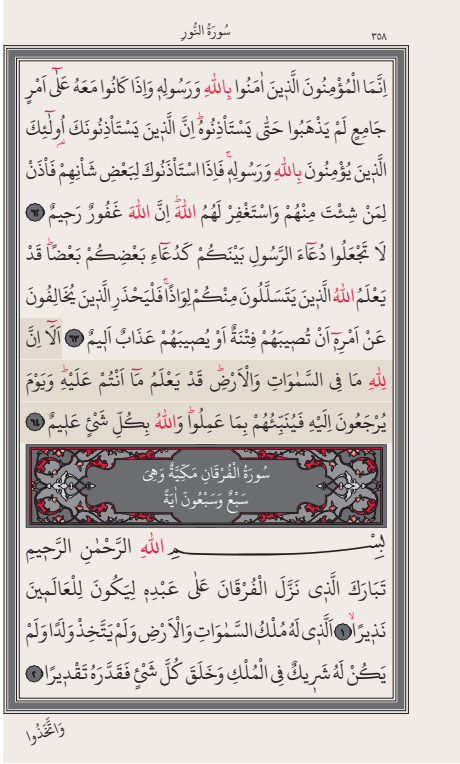 سُورَةُ النُّورِ
٣٥٨
اِنَّمَا الْمُؤْمِنُونَ الَّذٖينَ اٰمَنُوا بِاللّٰهِ وَرَسُولِهٖ وَاِذَا كَانُوا مَعَهُ عَلٰٓى اَمْرٍ
جَامِعٍ لَمْ يَذْهَبُوا حَتّٰى يَسْتَأْذِنُوهُؕ اِنَّ الَّذٖينَ يَسْتَأْذِنُونَكَ اُولٰٓئِكَ
الَّذٖينَ يُؤْمِنُونَ بِاللّٰهِ وَرَسُولِهٖۚ فَاِذَا اسْتَأْذَنُوكَ لِبَعْضِ شَأْنِهِمْ فَأْذَنْ
لِمَنْ شِئْتَ مِنْهُمْ وَاسْتَغْفِرْ لَهُمُ اللّٰهَؕ اِنَّ اللّٰهَ غَفُورٌ رَحٖيمٌ ٦٢
لَا تَجْعَلُوا دُعَٓاءَ الرَّسُولِ بَيْنَكُمْ كَدُعَٓاءِ بَعْضِكُمْ بَعْضًاؕ قَدْ
يَعْلَمُ اللّٰهُ الَّذٖينَ يَتَسَلَّلُونَ مِنْكُمْ لِوَاذًاۚ فَلْيَحْذَرِ الَّذٖينَ يُخَالِفُونَ
عَنْ اَمْرِهٖٓ اَنْ تُصٖيبَهُمْ فِتْنَةٌ اَوْ يُصٖيبَهُمْ عَذَابٌ اَلٖيمٌ ٦٣ اَلَٓا اِنَّ
لِلّٰهِ مَا فِي السَّمٰوَاتِ وَالْاَرْضِؕ قَدْ يَعْلَمُ مَٓا اَنْتُمْ عَلَيْهِؕ وَيَوْمَ
يُرْجَعُونَ اِلَيْهِ فَيُنَبِّئُهُمْ بِمَا عَمِلُواؕ وَاللّٰهُ بِكُلِّ شَيْءٍ عَلٖيمٌ ٦٤
سُورَةُ الْفُرْقَانِ مَكِّيَّةٌ وَهِيَ
سَبْعٌ وَسَبْعُونَ اٰيَةً
بِسْمِ اللّٰهِ الرَّحْمٰنِ الرَّحٖيمِ
تَبَارَكَ الَّذٖي نَزَّلَ الْفُرْقَانَ عَلٰى عَبْدِهٖ لِيَكُونَ لِلْعَالَمٖينَ
نَذٖيرًاۙ ١ اَلَّذٖي لَهُ مُلْكُ السَّمٰوَاتِ وَالْاَرْضِ وَلَمْ يَتَّخِذْ وَلَدًا وَلَمْ
يَكُنْ لَهُ شَرٖيكٌ فِي الْمُلْكِ وَخَلَقَ كُلَّ شَيْءٍ فَقَدَّرَهُ تَقْدٖيرًا ٢
وَاتَّخَذُوا